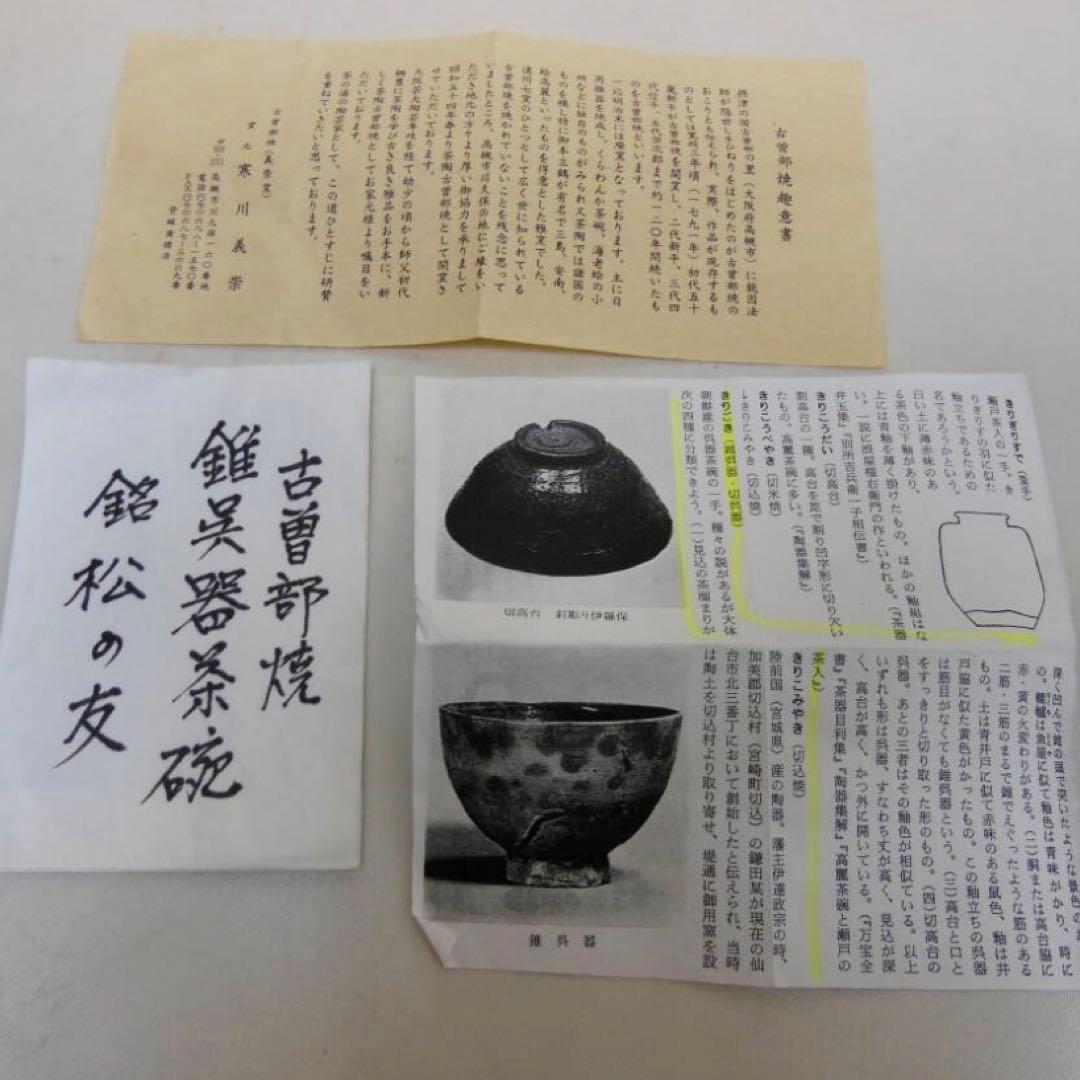 古曽部焼趣意書
摂津の国古曽部の里(大阪府高槻市)に能因法
師が隠世し手ひねりをはじめたのが古曽部焼の
おこりとも伝えられ、実際、作品が現存するも
のとしては寛政三年頃(一七九一年)初代五十
嵐新平が古曽部焼を開窯し、二代新平、三代四
代信平、五代宗次郎まで約一二〇年間続いたも
のを古曽部焼といいます。
一応明治末には廃窯となっております。主に日
用雑器を焼成し、くらわんか茶碗、海老絵の小
皿などに独自のものがみられ又茶陶では諸国の
ものを模し特に御本立鶴が有名で三島、安南、
絵高麗といったものを得意とした雅窯でした。
遠州七窯のひとつとして広く世に知られている
古曽部焼を焼かれていないことを残念に思って
いましたところ、高槻市川久保の地にご縁をい
ただき地元の方々より厚い御協力を承りまして
昭和五十四年春より茶陶古曽部焼として開窯さ
せていただいております。
大阪芸大陶芸専攻を経て幼少の頃から師父初代
楢崇に茶陶を学び古き良き雅品をお手本に、新
しく茶陶古曽部焼としてお家元様より嘱目をい
ただいております。
茶の湯の陶芸家として、この道ひとすじに研賛
を重ねていきたいと思っております。
古曽部焼(義崇窯)
窯元 寒川義崇
高槻市川久保一一〇番地
登録商標法
古曽部焼
錐呉器茶碗
銘 松の友
きりぎりすで(蛬手)
瀬戸茶入の一手。き
りぎりすの羽に似た
釉立ちであるための
名であろうかという。
白い土に薄赤味のあ
る茶色の下釉があり、
上には青釉を薄く掛けたもの。ほかの釉組はな
い。一説に浪屋種右衛門の作といわれる。(『茶器
弁玉集』『別所吉兵衛一子相伝書』)
きりこうだい(切高台)
割高台の一種。高台を箆で割り凹字形に切り欠い
たもの。高麗茶碗に多い。(『陶器集解』)
きりこうべやき(切米焼)
↓きりこみやき(切込焼)
きりごき(錐呉器・切呉器)
朝鮮産の呉器茶碗の一手。種々の説があるが大体
次の四種に分類できよう。(一)見込の茶溜まりが
切高台 釘彫り伊羅保
深く凹んで錐の頭で突いたような景色の
の。轆轤は魚屋に似て釉色は青味がかり、時に
赤・黄の火変わりがある。(二)胴または高台脇に
二筋・三筋のまるで錐でえぐったような筋のある
もの。土は青井戸に似て赤味のある鼠色、釉は井
戸脇に似た黄色がかったもの。この釉立ちの呉器
は筋目がなくても錐呉器という。(三)高台と口と
をすっきりと切り取った形のもの。(四)切高台の
呉器。あとの三者はその釉色が相似ている。以上
いずれも形は呉器、すなわち丈が高く、見込が深
く、高台が高く、かつ外に開いている。(『万宝全
書』『茶器目利集』『陶器集解』『高麗茶碗と瀬戸の
茶入』)
きりこみやき(切込焼)
陸前国(宮城県)産の陶器。藩主伊達政宗の時、
加美郡切込村(宮崎町切込)の鎌田某が現在の仙
台市北三番丁において創始したと伝えられ、当時
は陶土を切込村より取り寄せ、堤通に御用窯を設
錐呉器